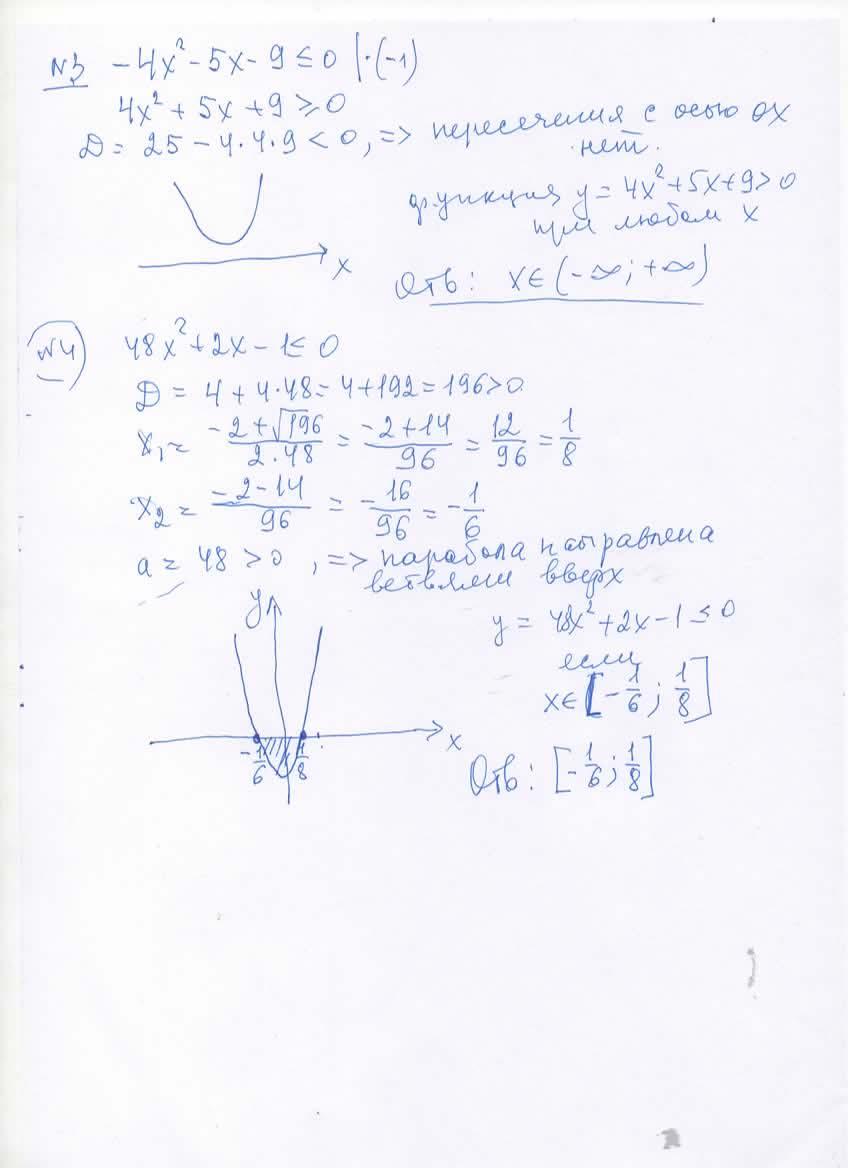 №3 -4x² - 5x - 9 ≤ 0 |·(-1)
4x² + 5x + 9 ≥ 0
D = 25 - 4·4·9 < 0, => пересечения с осью OX
нет.
функция y = 4x² + 5x + 9 > 0
при любом x
x
Отв: x∈(-∞; +∞)
№4 48x² + 2x - 1 ≤ 0
D = 4 + 4·48 = 4 + 192 = 196 > 0
x₁ = (-2 + √196)/(2·48) = (-2 + 14)/96 = 12/96 = 1/8
x₂ = (-2 - 14)/96 = -16/96 = -1/6
a = 48 > 0, => парабола направлена
ветвями вверх
y
y = 48x² + 2x - 1 ≤ 0
если
x∈[-1/6; 1/8]
x
-1/6 1/8
Отв: [-1/6; 1/8]